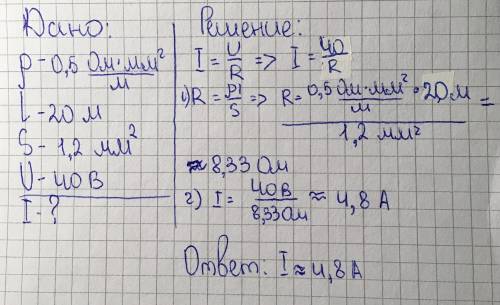 Дано:
ρ - 0,5 Ом·мм²/м
L - 20 м
S - 1,2 мм²
U - 40 В
I - ?
Решение:
I = U/R => I = 40/R
1) R = ρl/S => R = 0,5 Ом·мм²/м · 20 м / 1,2 мм² =
≈ 8,33 Ом
2) I = 40 В / 8,33 Ом ≈ 4,8 А
Ответ: I ≈ 4,8 А